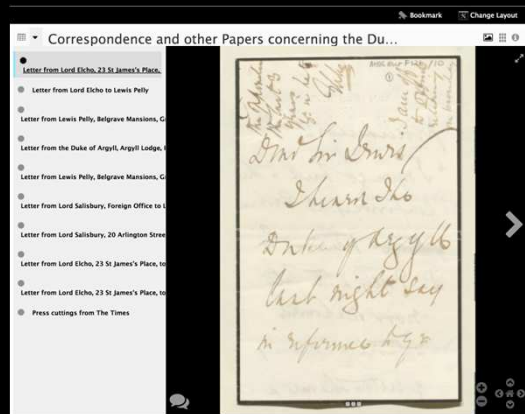 Bookmark Change Layout
Correspondence and other Papers concerning the Du...
Letter from Lord Elcho, 23 St James's Place,
Letter from Lord Elcho to Lewis Pelly
Letter from Lewis Pelly, Belgrave Mansions, G
Letter from the Duke of Argyll, Argyll Lodge,
Letter from Lewis Pelly, Belgrave Mansions, G
Letter from Lord Salisbury, Foreign Office to L
Letter from Lord Salisbury, 20 Arlington Stree
Letter from Lord Elcho, 23 St James's Place, to
Letter from Lord Elcho, 23 St James's Place, to
Press cuttings from The Times
Dear Sir Lewis
I heard the
Duke of Argyll
last night say
in reference to